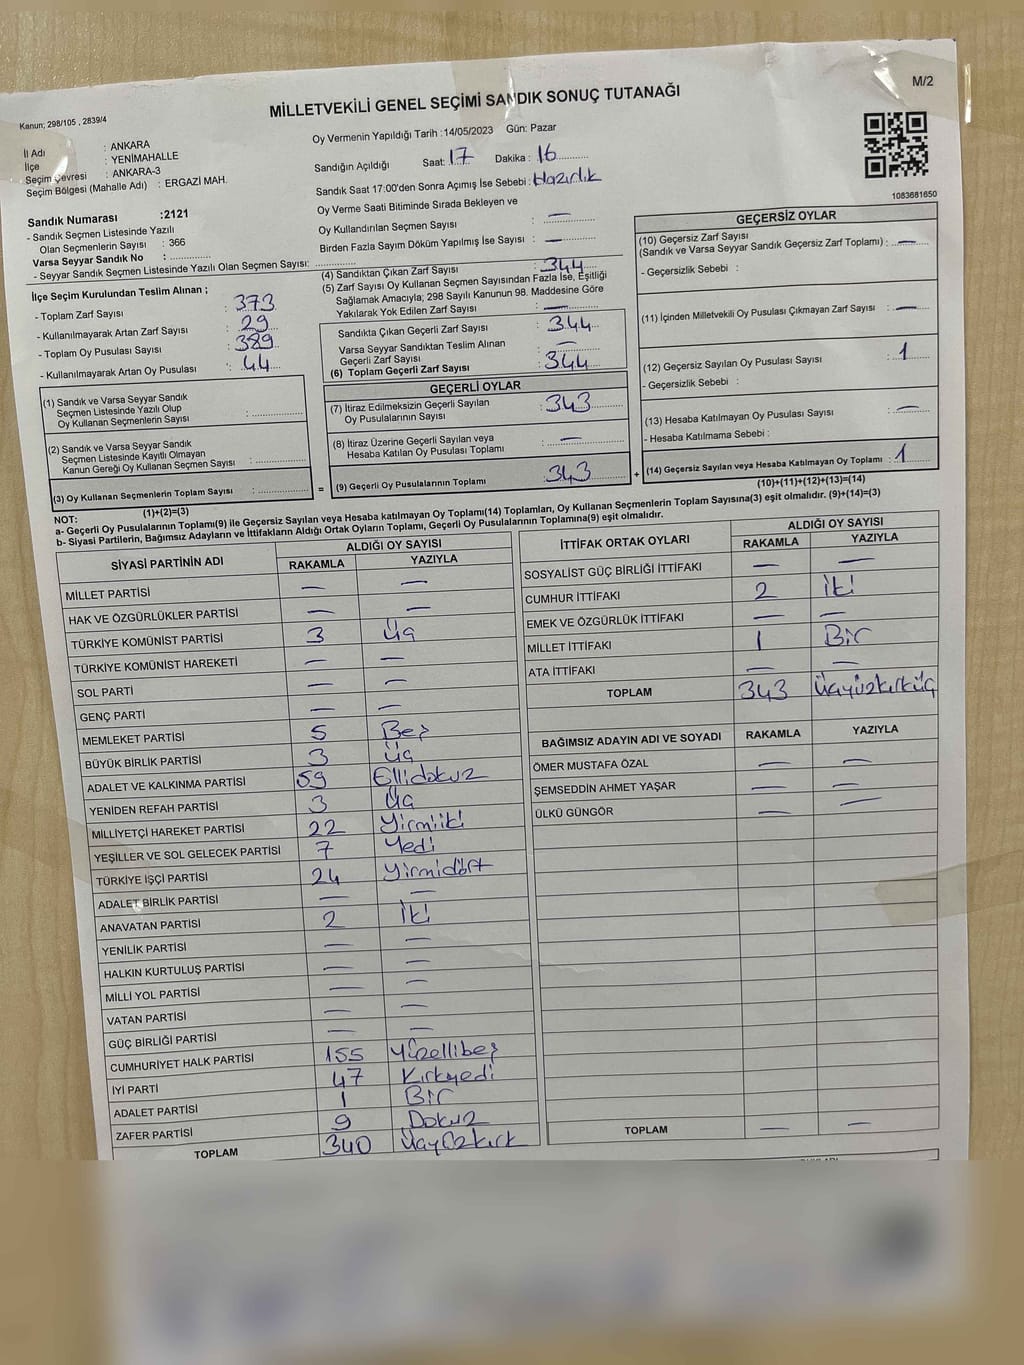 M/2
MİLLETVEKİLİ GENEL SEÇİMİ SANDIK SONUÇ TUTANAĞI
Kanun; 298/105 , 2839/4
İl Adı : ANKARA
İlçe : YENİMAHALLE
Seçim Çevresi : ANKARA-3
Seçim Bölgesi (Mahalle Adı) : ERGAZİ MAH.
Oy Vermenin Yapıldığı Tarih :14/05/2023 Gün: Pazar
Sandığın Açıldığı Saat: 17 Dakika : 16
Sandık Saat 17:00'den Sonra Açımış İse Sebebi : Hazırlık
Oy Verme Saati Bitiminde Sırada Bekleyen ve
Oy Kullandırılan Seçmen Sayısı : —
Birden Fazla Sayım Döküm Yapılmış İse Sayısı : —
1083681650
Sandık Numarası :2121
- Sandık Seçmen Listesinde Yazılı
Olan Seçmenlerin Sayısı : 366
Varsa Seyyar Sandık No :
- Seyyar Sandık Seçmen Listesinde Yazılı Olan Seçmen Sayısı:
İlçe Seçim Kurulundan Teslim Alınan ;
- Toplam Zarf Sayısı : 373
- Kullanılmayarak Artan Zarf Sayısı : 29
- Toplam Oy Pusulası Sayısı : 389
- Kullanılmayarak Artan Oy Pusulası : 44
(1) Sandık ve Varsa Seyyar Sandık
Seçmen Listesinde Yazılı Olup
Oy Kullanan Seçmenlerin Sayısı :
(2) Sandık ve Varsa Seyyar Sandık
Seçmen Listesinde Kayıtlı Olmayan
Kanun Gereği Oy Kullanan Seçmen Sayısı :
(3) Oy Kullanan Seçmenlerin Toplam Sayısı :
(1)+(2)=(3)
(4) Sandıktan Çıkan Zarf Sayısı : 344
(5) Zarf Sayısı Oy Kullanan Seçmen Sayısından Fazla İse, Eşitliği
Sağlamak Amacıyla; 298 Sayılı Kanunun 98. Maddesine Göre
Yakılarak Yok Edilen Zarf Sayısı : —
Sandıkta Çıkan Geçerli Zarf Sayısı : 344
Varsa Seyyar Sandıktan Teslim Alınan
Geçerli Zarf Sayısı : —
(6) Toplam Geçerli Zarf Sayısı : 344
GEÇERLİ OYLAR
(7) İtiraz Edilmeksizin Geçerli Sayılan
Oy Pusulalarının Sayısı : 343
(8) İtiraz Üzerine Geçerli Sayılan veya
Hesaba Katılan Oy Pusulası Toplamı : —
= (9) Geçerli Oy Pusulalarının Toplamı : 343 +
GEÇERSİZ OYLAR
(10) Geçersiz Zarf Sayısı
(Sandık ve Varsa Seyyar Sandık Geçersiz Zarf Toplamı) : —
- Geçersizlik Sebebi :
(11) İçinden Milletvekili Oy Pusulası Çıkmayan Zarf Sayısı : —
(12) Geçersiz Sayılan Oy Pusulası Sayısı : 1
- Geçersizlik Sebebi :
(13) Hesaba Katılmayan Oy Pusulası Sayısı : —
- Hesaba Katılmama Sebebi :
(14) Geçersiz Sayılan veya Hesaba Katılmayan Oy Toplamı : 1
(10)+(11)+(12)+(13)=(14)
NOT:
a- Geçerli Oy Pusulalarının Toplamı(9) ile Geçersiz Sayılan veya Hesaba katılmayan Oy Toplamı(14) Toplamları, Oy Kullanan Seçmenlerin Toplam Sayısına(3) eşit olmalıdır. (9)+(14)=(3)
b- Siyasi Partilerin, Bağımsız Adayların ve İttifakların Aldığı Ortak Oyların Toplamı, Geçerli Oy Pusulalarının Toplamına(9) eşit olmalıdır.
SİYASİ PARTİNİN ADI ALDIĞI OY SAYISI
RAKAMLA YAZIYLA
MİLLET PARTİSİ — —
HAK VE ÖZGÜRLÜKLER PARTİSİ — —
TÜRKİYE KOMÜNİST PARTİSİ 3 Üç
TÜRKİYE KOMÜNİST HAREKETİ — —
SOL PARTİ — —
GENÇ PARTİ — —
MEMLEKET PARTİSİ 5 Beş
BÜYÜK BİRLİK PARTİSİ 3 Üç
ADALET VE KALKINMA PARTİSİ 59 Ellidokuz
YENİDEN REFAH PARTİSİ 3 Üç
MİLLİYETÇİ HAREKET PARTİSİ 22 Yirmiiki
YEŞİLLER VE SOL GELECEK PARTİSİ 7 Yedi
TÜRKİYE İŞÇİ PARTİSİ 24 Yirmidört
ADALET BİRLİK PARTİSİ — —
ANAVATAN PARTİSİ 2 İki
YENİLİK PARTİSİ — —
HALKIN KURTULUŞ PARTİSİ — —
MİLLİ YOL PARTİSİ — —
VATAN PARTİSİ — —
GÜÇ BİRLİĞİ PARTİSİ — —
CUMHURİYET HALK PARTİSİ 155 Yüzellibeş
İYİ PARTİ 47 Kırkyedi
ADALET PARTİSİ 1 Bir
ZAFER PARTİSİ 9 Dokuz
TOPLAM 340 Üçyüzkırk
İTTİFAK ORTAK OYLARI ALDIĞI OY SAYISI
RAKAMLA YAZIYLA
SOSYALİST GÜÇ BİRLİĞİ İTTİFAKI — —
CUMHUR İTTİFAKI 2 İki
EMEK VE ÖZGÜRLÜK İTTİFAKI — —
MİLLET İTTİFAKI 1 Bir
ATA İTTİFAKI — —
TOPLAM 343 Üçyüzkırküç
BAĞIMSIZ ADAYIN ADI VE SOYADI RAKAMLA YAZIYLA
ÖMER MUSTAFA ÖZAL — —
ŞEMSEDDİN AHMET YAŞAR — —
ÜLKÜ GÜNGÖR — —
TOPLAM — —